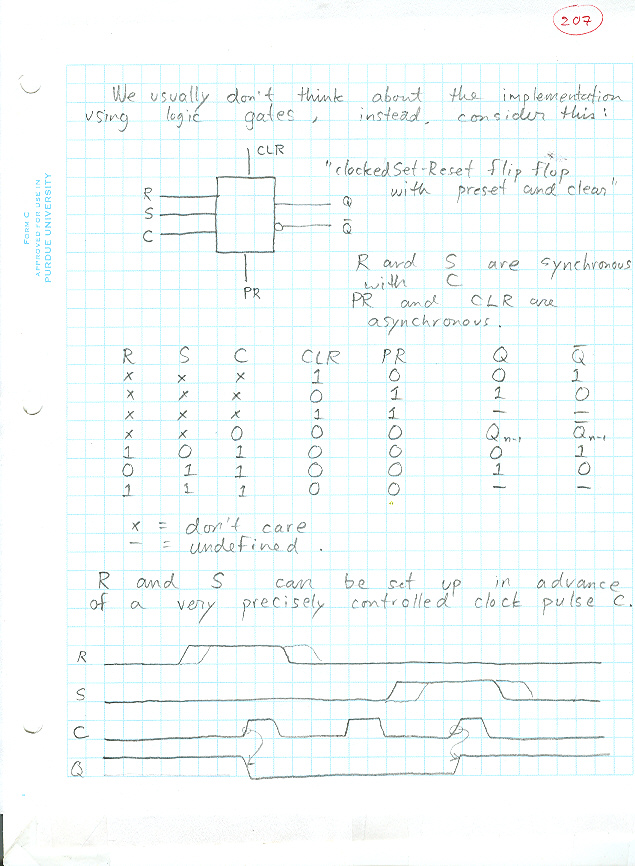 207
We usually don't think about the implementation
using logic gates, instead, consider this:
CLR
"clocked Set-Reset flip flop
with preset and clear"
R
S
C
Q
Q̅
PR
R and S are synchronous
with C
PR and CLR are
asynchronous.
FORM C
APPROVED FOR USE IN
PURDUE UNIVERSITY
R S C CLR PR Q Q̅
x x x 1 0 0 1
x x x 0 1 1 0
x x x 1 1 – –
x x 0 0 0 Qn-1 Q̅n-1
1 0 1 0 0 0 1
0 1 1 0 0 1 0
1 1 1 0 0 – –
x = don't care
– = undefined.
R and S can be set up in advance
of a very precisely controlled clock pulse C.
R
S
C
Q